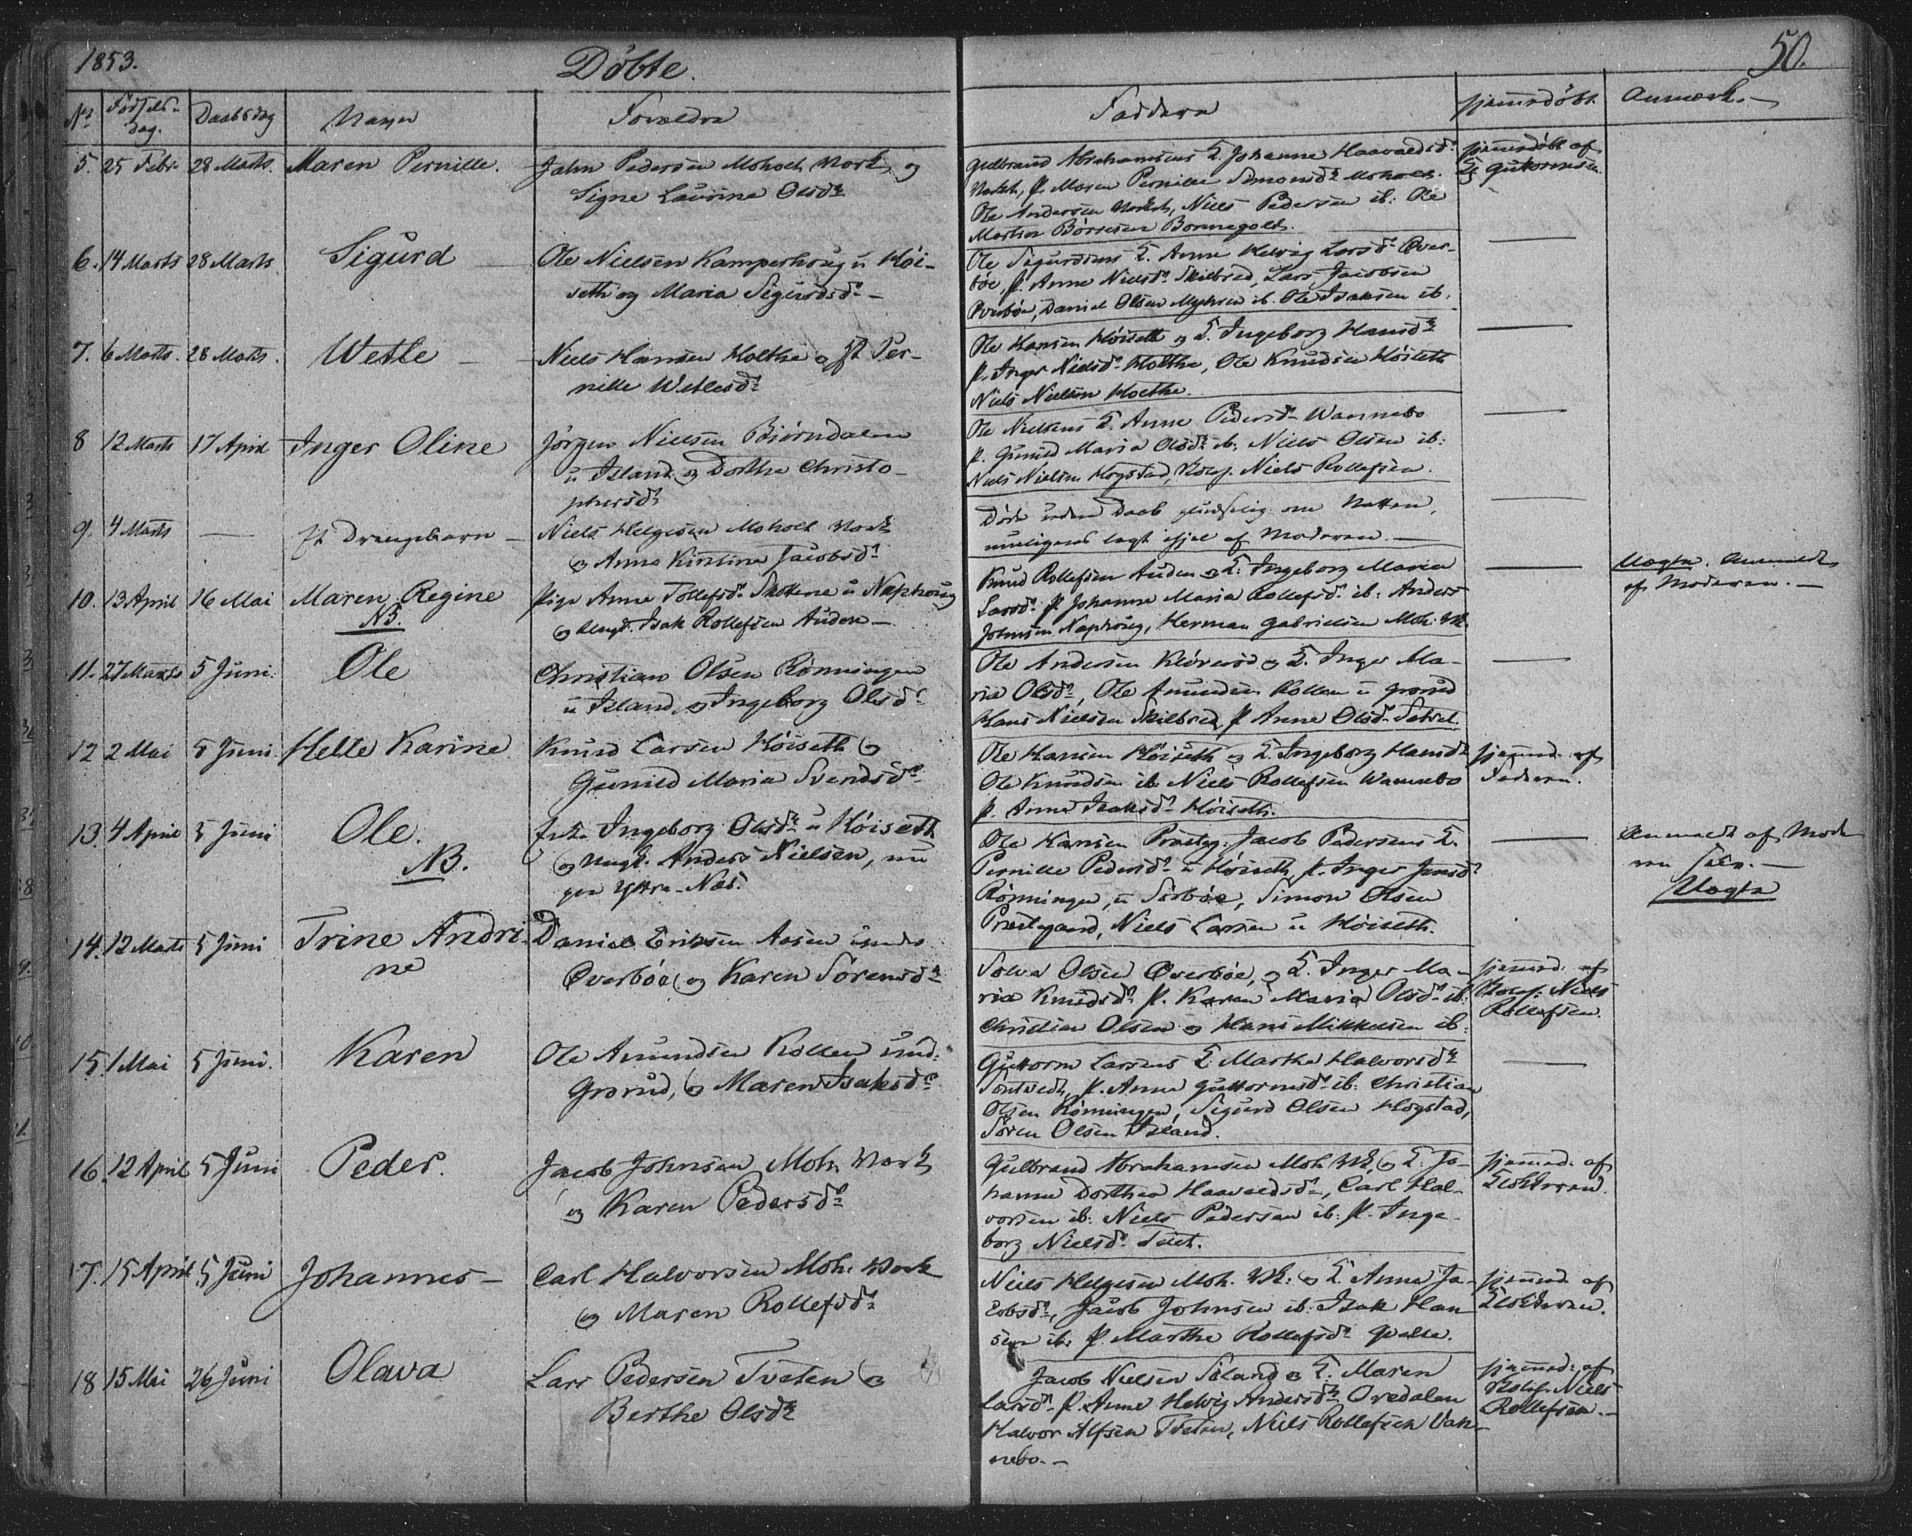 1853.
Döbte.
50.
No
Födsels-
dag.
Daabsdag
Navn
Forældre
Faddere
hjemmedöbt.
Anmærk.
5. 25 Febr. 28 Marts. Maren Pernille.
John Pedersen Moholt Værk, og
Signe Laurine Olsdr
Gulbrand Abrahamsens K. Johanne Haavardsdr
Værk, P. Maren Pernille Simonsdr Moholt.
Ole Andersen Værket, Niels Pedersen ib: Ole
Martin Börresen
hjemmedöbt af
Guttormsen
6. 14 Marts 28 Marts. Sigurd
Ole Nielsen Kamperhoug u Höi-
seth og Maria Sigurdsdr
Ole Sigurdsens K. Anne Helvig Larsd. Över-
böe, P. Anne Nielsd. Skilbred, Lars Jacobsen
Överböe, Daniel Olsen Myhren ib. Ole Isaksen ib.
7. 6 Marts. 28 Marts. Wetle
Niels Hansen Holthe og Per-
nille Wetlesdr
Ole Hansen Höiseth og K. Ingeborg Hansdr
P. Inger Nielsdr Holthe, Ole Knudsen Höiseth
Niels Nielsen Holthe.
8 12 Marts 17 April Inger Oline
Jörgen Nielsen Björndalen
u Island og Dorthe Christo-
phersdr
Ole Nielsens K. Anne Pedersd. Wannebo
P. Gunild Maria Olsdr ib. Niels Olsen ib:
Niels Nielsen Hogstad, Niels Rollefsen.
9. 4 Marts — Drengebarn
Niels Helgesen Moholt Værk
og Anne Kirstine Jacobsdr
Döde uden Daab pludselig om Natten,
muligens lagt ihjel af Moderen.
10. 13 April 16 Mai Maren Regine
NB.
Pige Anne Tollefsdr u Naphoug
og Ungk. Isak Rollefsen Auden
Knud Rollefsen Auden og K. Ingeborg Maria
Larsd. P. Johanne Maria Rollefsd. ib: Anders
Johnsen Naphoug, Herman Gabrielsen Moh. Vk.
Uægte. Anmeldt
af Moderen.
11. 27 Marts 5 Juni. Ole
Christian Olsen Rönningen
u Island, og Ingeborg Olsdr
Ole Andersen og K. Inger Ma-
ria Olsdr, Ole Amundsen Rollen u Grorud
Hans Nielsen Skilbred, P. Anne Olsd.
12 2 Mai 5 Juni. Helle Karine
Knud Larsen Höiseth og
Gunild Maria Svendsdr
Ole Hansen Höiseth og K. Ingeborg Hansdr
Ole Knudsen ib. Niels Rollefsen Wannebo
P. Anne Isaksdr Höiseth.
hjemmed. af
Faderen.
13. 4 April 5 Juni Ole.
NB.
Ingeborg Olsdr u Höiseth
og Ungk. Anders Nielsen, nu
paa Yttre-Næs.
Ole Hansen Præsteg. Jacob Pedersens K.
Pernille Pedersdr u Höiseth, P. Inger Jensdr
Rönningen, u Sörböe, Simon Olsen
Præstgaard, Niels Larsen u Höiseth.
Anmeldt af Mode
ren selv.
Uægte
14. 12 Marts 5 Juni Trine Andri-
ne
Daniel Eriksen Aasen under
Överböe og Karen Sörensdr
Solve Olsen Överböe, og K. Inger Ma-
ria Knudsdr P. Karen Maria Olsdr ib.
Christian Olsen og Hans Mikkelsen ib.
hjemmed. af
Niels
Rollefsen.
15. 1 Mai 5 Juni. Karen
Ole Amundsen Rollen und.
Grorud, og Maren Isaksdr
Guttorm Larsens K. Marthe Halvorsdr
Töntvedt, P. Anne Guttormsdr ib: Christian
Olsen Rönningen, Sigurd Olsen Hogstad,
Sören Olsen Island.
16. 12 April 5 Juni Peder.
Jacob Johnsen Moh. Værk
og Karen Pedersdr
Gulbrand Abrahamsen Moh. Vk og K. Jo-
hanne Dorthea Haavardsdr, Carl Hal-
vorsen ib: Niels Pedersen ib: P. Inge-
borg Nielsdr
hjemmed. af
Klokkeren.
17. 15 April 5 Juni Johannes
Carl Halvorsen Moh. Værk
og Maren Rollefsdr
Niels Helgesen Moh. Vk. og K. Anne Ja-
cobsdr, Jacob Johnsen ib. Isak Han
sen ib. P. Marthe Rollefsdr
hjemmed. af
Klokkeren.
18 15 Mai 26 Juni Olava
Lars Pedersen Tveten og
Berthe Olsdr
Jacob Nielsen Island og K. Maren
Larsdr P. Anne Helvig Andersdr Ovedalen
Halvor Alfsen Tveten, Niels Rollefsen Van-
nebo.
hjemmed. af
Niels
Rollefsen.